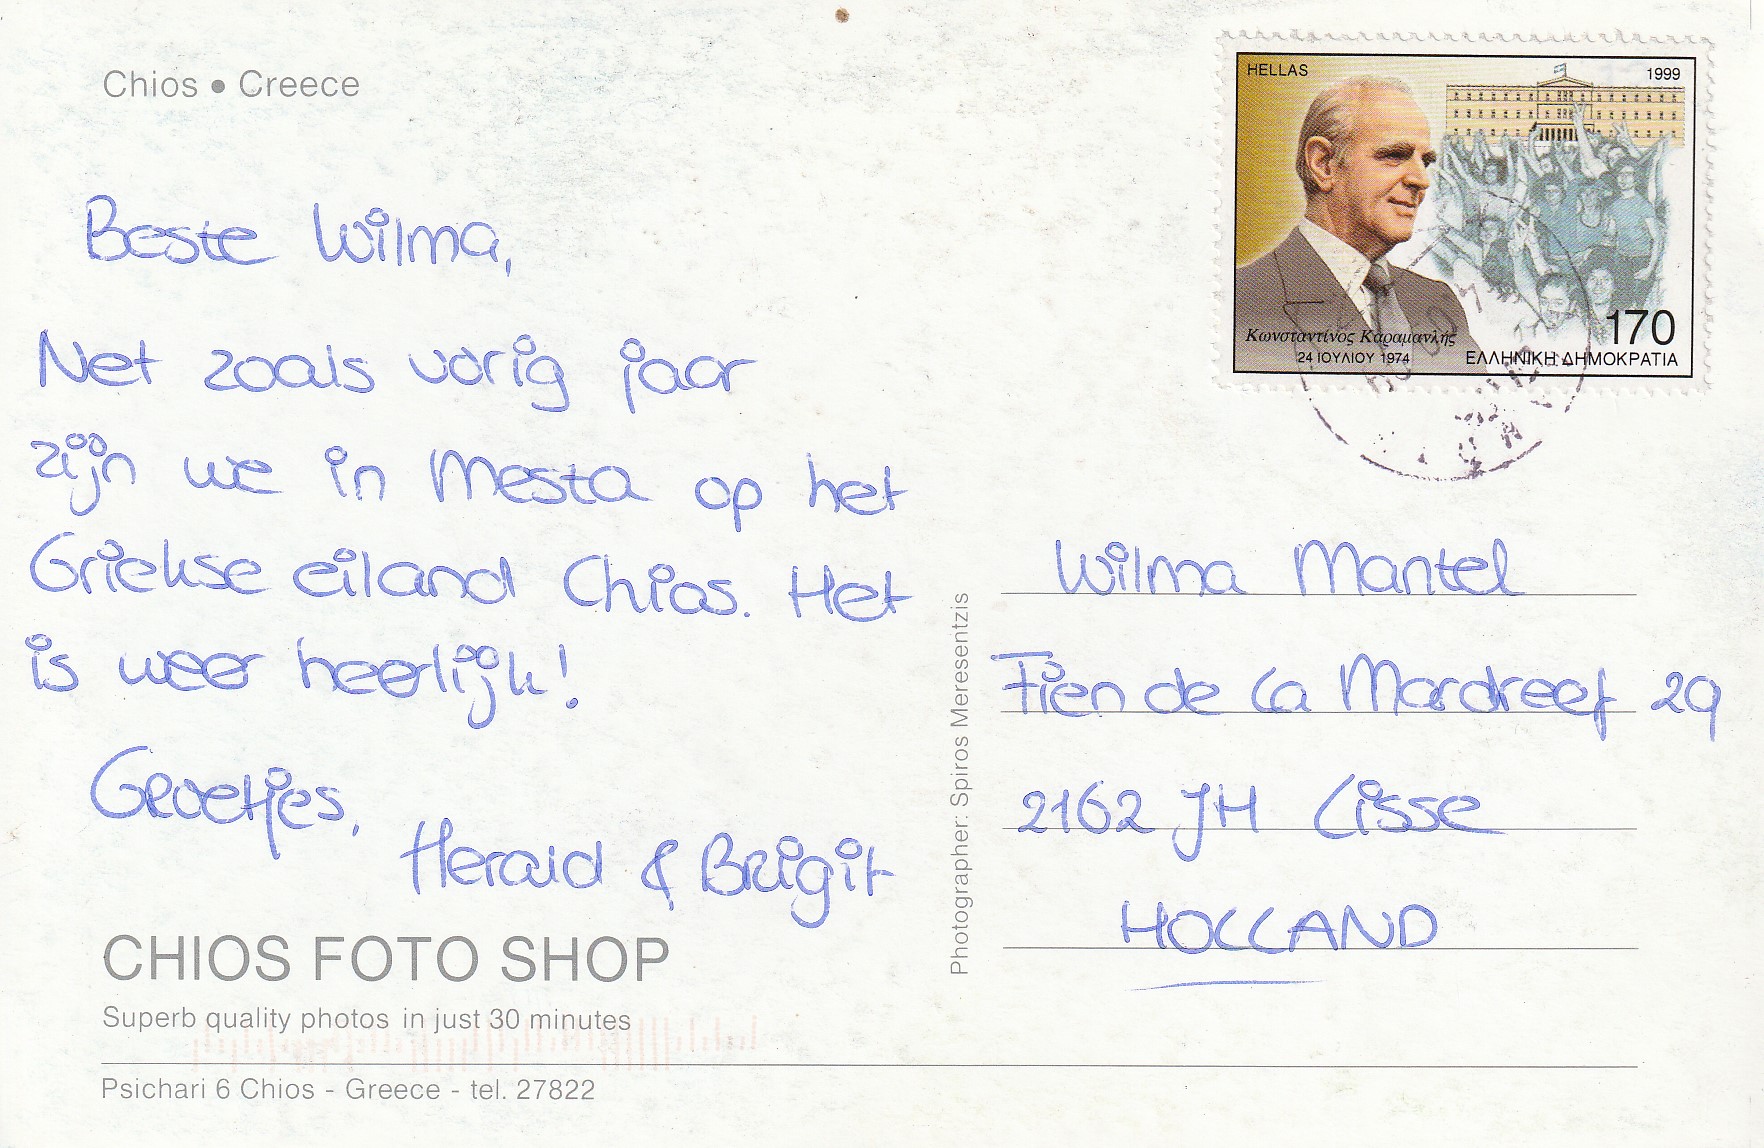 Chios • Creece
HELLAS
1999
Κωνσταντίνος Καραμανλής
24 ΙΟΥΛΙΟΥ 1974
170
ΕΛΛΗΝΙΚΗ ΔΗΜΟΚΡΑΤΙΑ
Beste Wilma,
Net zoals vorig jaar
zijn we in Mesta op het
Griekse eiland Chios. Het
is weer heerlijk!
Groetjes,
Herald & Brigit
CHIOS FOTO SHOP
Superb quality photos in just 30 minutes
Psichari 6 Chios - Greece - tel. 27822
Photographer: Spiros Meresentzis
Wilma Mantel
Fien de la Mardreef 29
2162 JH Lisse
HOLLAND